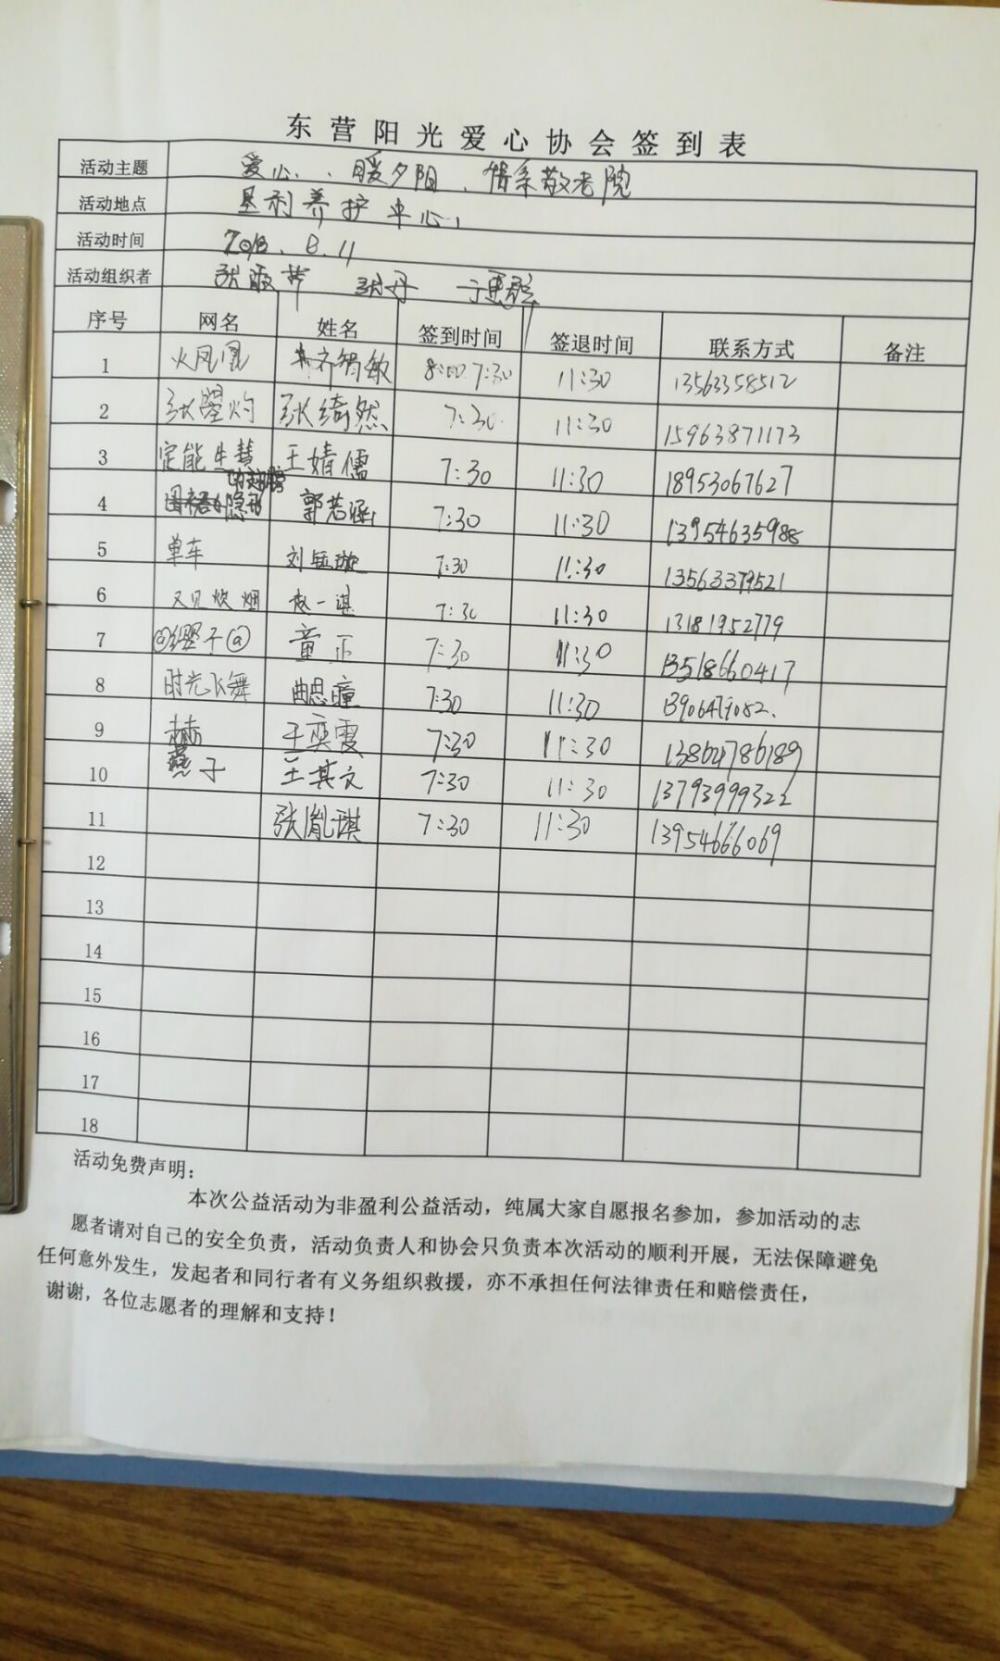 东营阳光爱心协会签到表
活动主题 爱心、暖夕阳、情系敬老院
活动地点 垦利养护中心
活动时间 2018.8.11
活动组织者 张丹
序号 网名 姓名 签到时间 签退时间 联系方式 备注
1 火凤凰 7:30 11:30 13563358512
2 张曌灼 张绮然 7:30 11:30 15963871173
3 定能生慧 王婧儒 7:30 11:30 18953067627
4 郭若涵 7:30 11:30 13954635988
5 单车 刘 7:30 11:30 13563379521
6 又见炊烟 赵一谌 7:30 11:30 13181952779
7 @缨子@ 童正 7:30 11:30 13518660417
8 时光飞舞 曲思瞳 7:30 11:30
9 赫 王奕霞 7:30 11:30 13864786189
10 燕子 王其文 7:30 11:30 13793999322
11 张胤琪 7:30 11:30 13954666069
12
13
14
15
16
17
18
活动免费声明：
本次公益活动为非盈利公益活动，纯属大家自愿报名参加，参加活动的志
愿者请对自己的安全负责，活动负责人和协会只负责本次活动的顺利开展，无法保障避免
任何意外发生，发起者和同行者有义务组织救援，亦不承担任何法律责任和赔偿责任，
谢谢，各位志愿者的理解和支持！